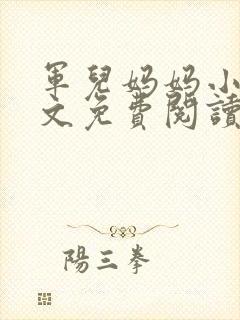 軍兒媽媽小
文免費閱讀
陽三拳